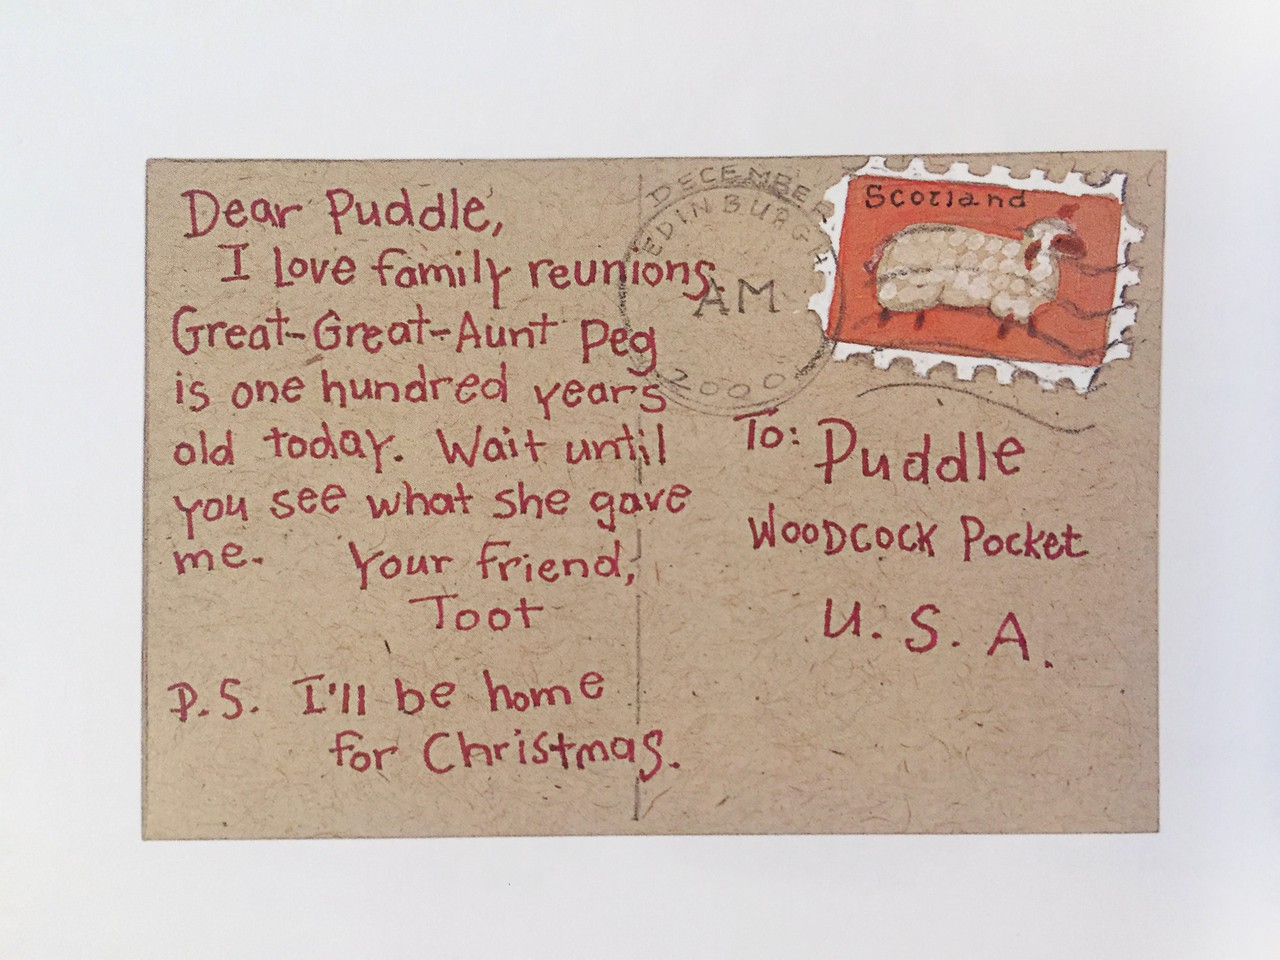 Dear Puddle,
I love family reunions.
Great-Great-Aunt Peg
is one hundred years
old today. Wait until
you see what she gave
me. Your friend,
Toot
P.S. I'll be home
for Christmas.
DECEMBER
EDINBURGH
AM
2000
Scotland
To: Puddle
WOODCOCK Pocket
U.S.A.